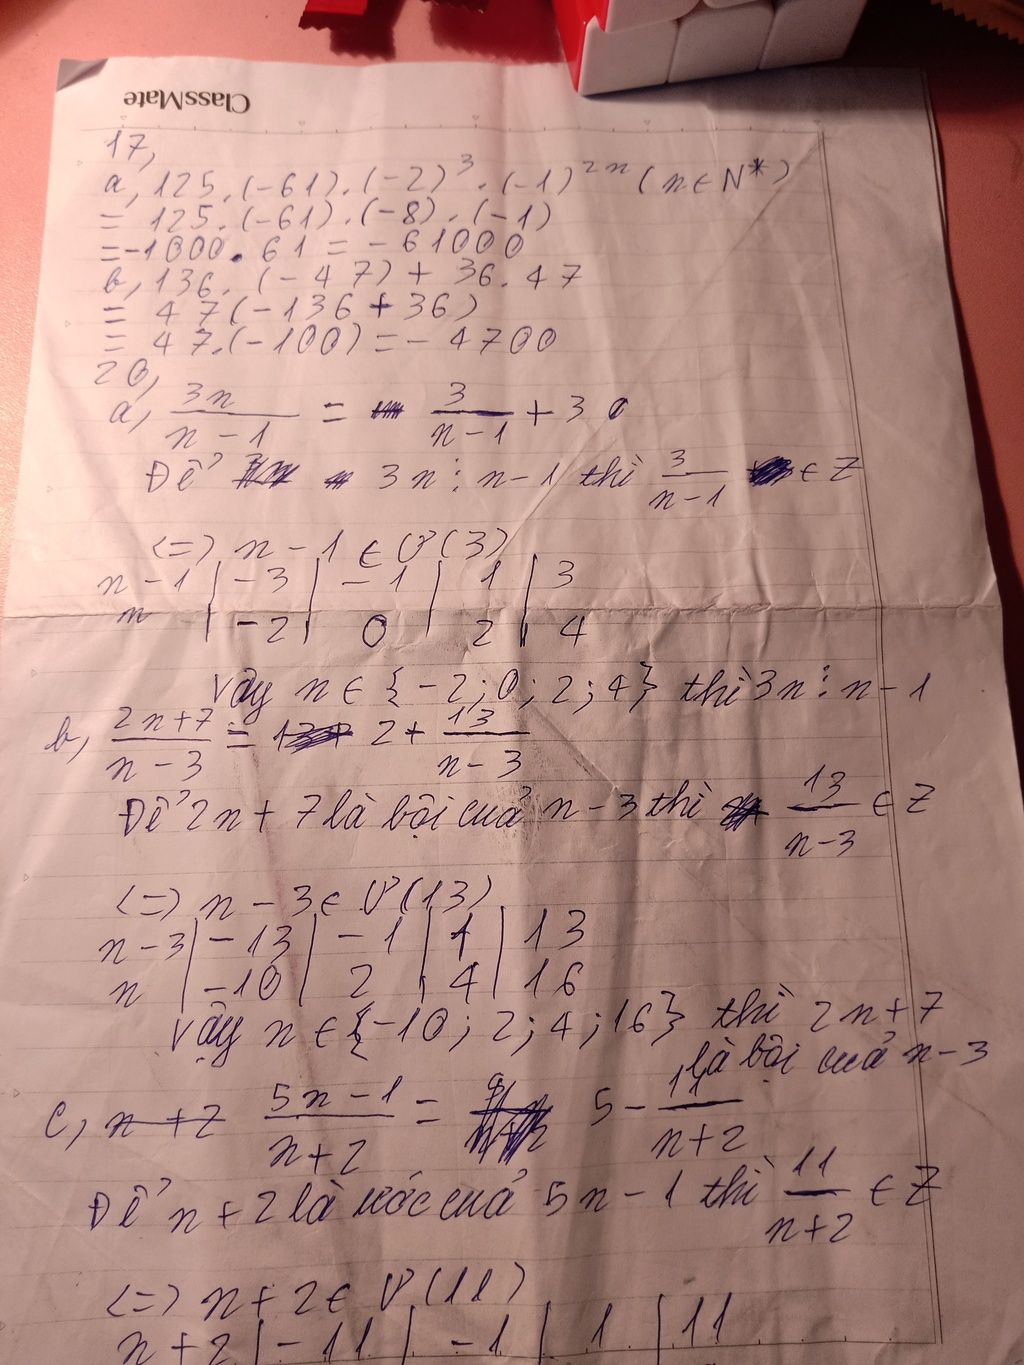 ClassMate
17,
a, 125.(-61).(-2)³.(-1)²ⁿ (n∈N*)
= 125.(-61).(-8).(-1)
=-1000.61 = -61000
b, 136.(-47) + 36.47
= 47(-136+36)
= 47.(-100) = -4700
20,
a, 3n/(n-1) = 3/(n-1) + 3
Để 3n ⋮ n-1 thì 3/(n-1) ∈ Z
<=> n-1 ∈ Ư(3)
n-1 | -3 | -1 | 1 | 3
n | -2 | 0 | 2 | 4
Vậy n∈ {-2;0;2;4} thì 3n ⋮ n-1
b, (2n+7)/(n-3) = 2 + 13/(n-3)
Để 2n+7 là bội của n-3 thì 13/(n-3) ∈ Z
<=> n-3∈ Ư(13)
n-3 | -13 | -1 | 1 | 13
n | -10 | 2 | 4 | 16
Vậy n∈{-10;2;4;16} thì 2n+7
là bội của n-3
c, n+2 (5n-1)/(n+2) = 5 - 11/(n+2)
Để n+2 là ước của 5n-1 thì 11/(n+2) ∈ Z
<=> n+2∈ Ư(11)
n+2 | -11 | -1 | 1 | 11